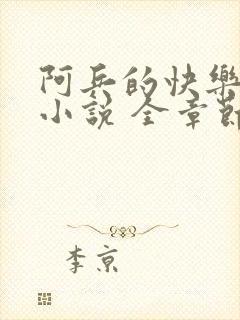 阿兵的快樂
小說 全章節
李京